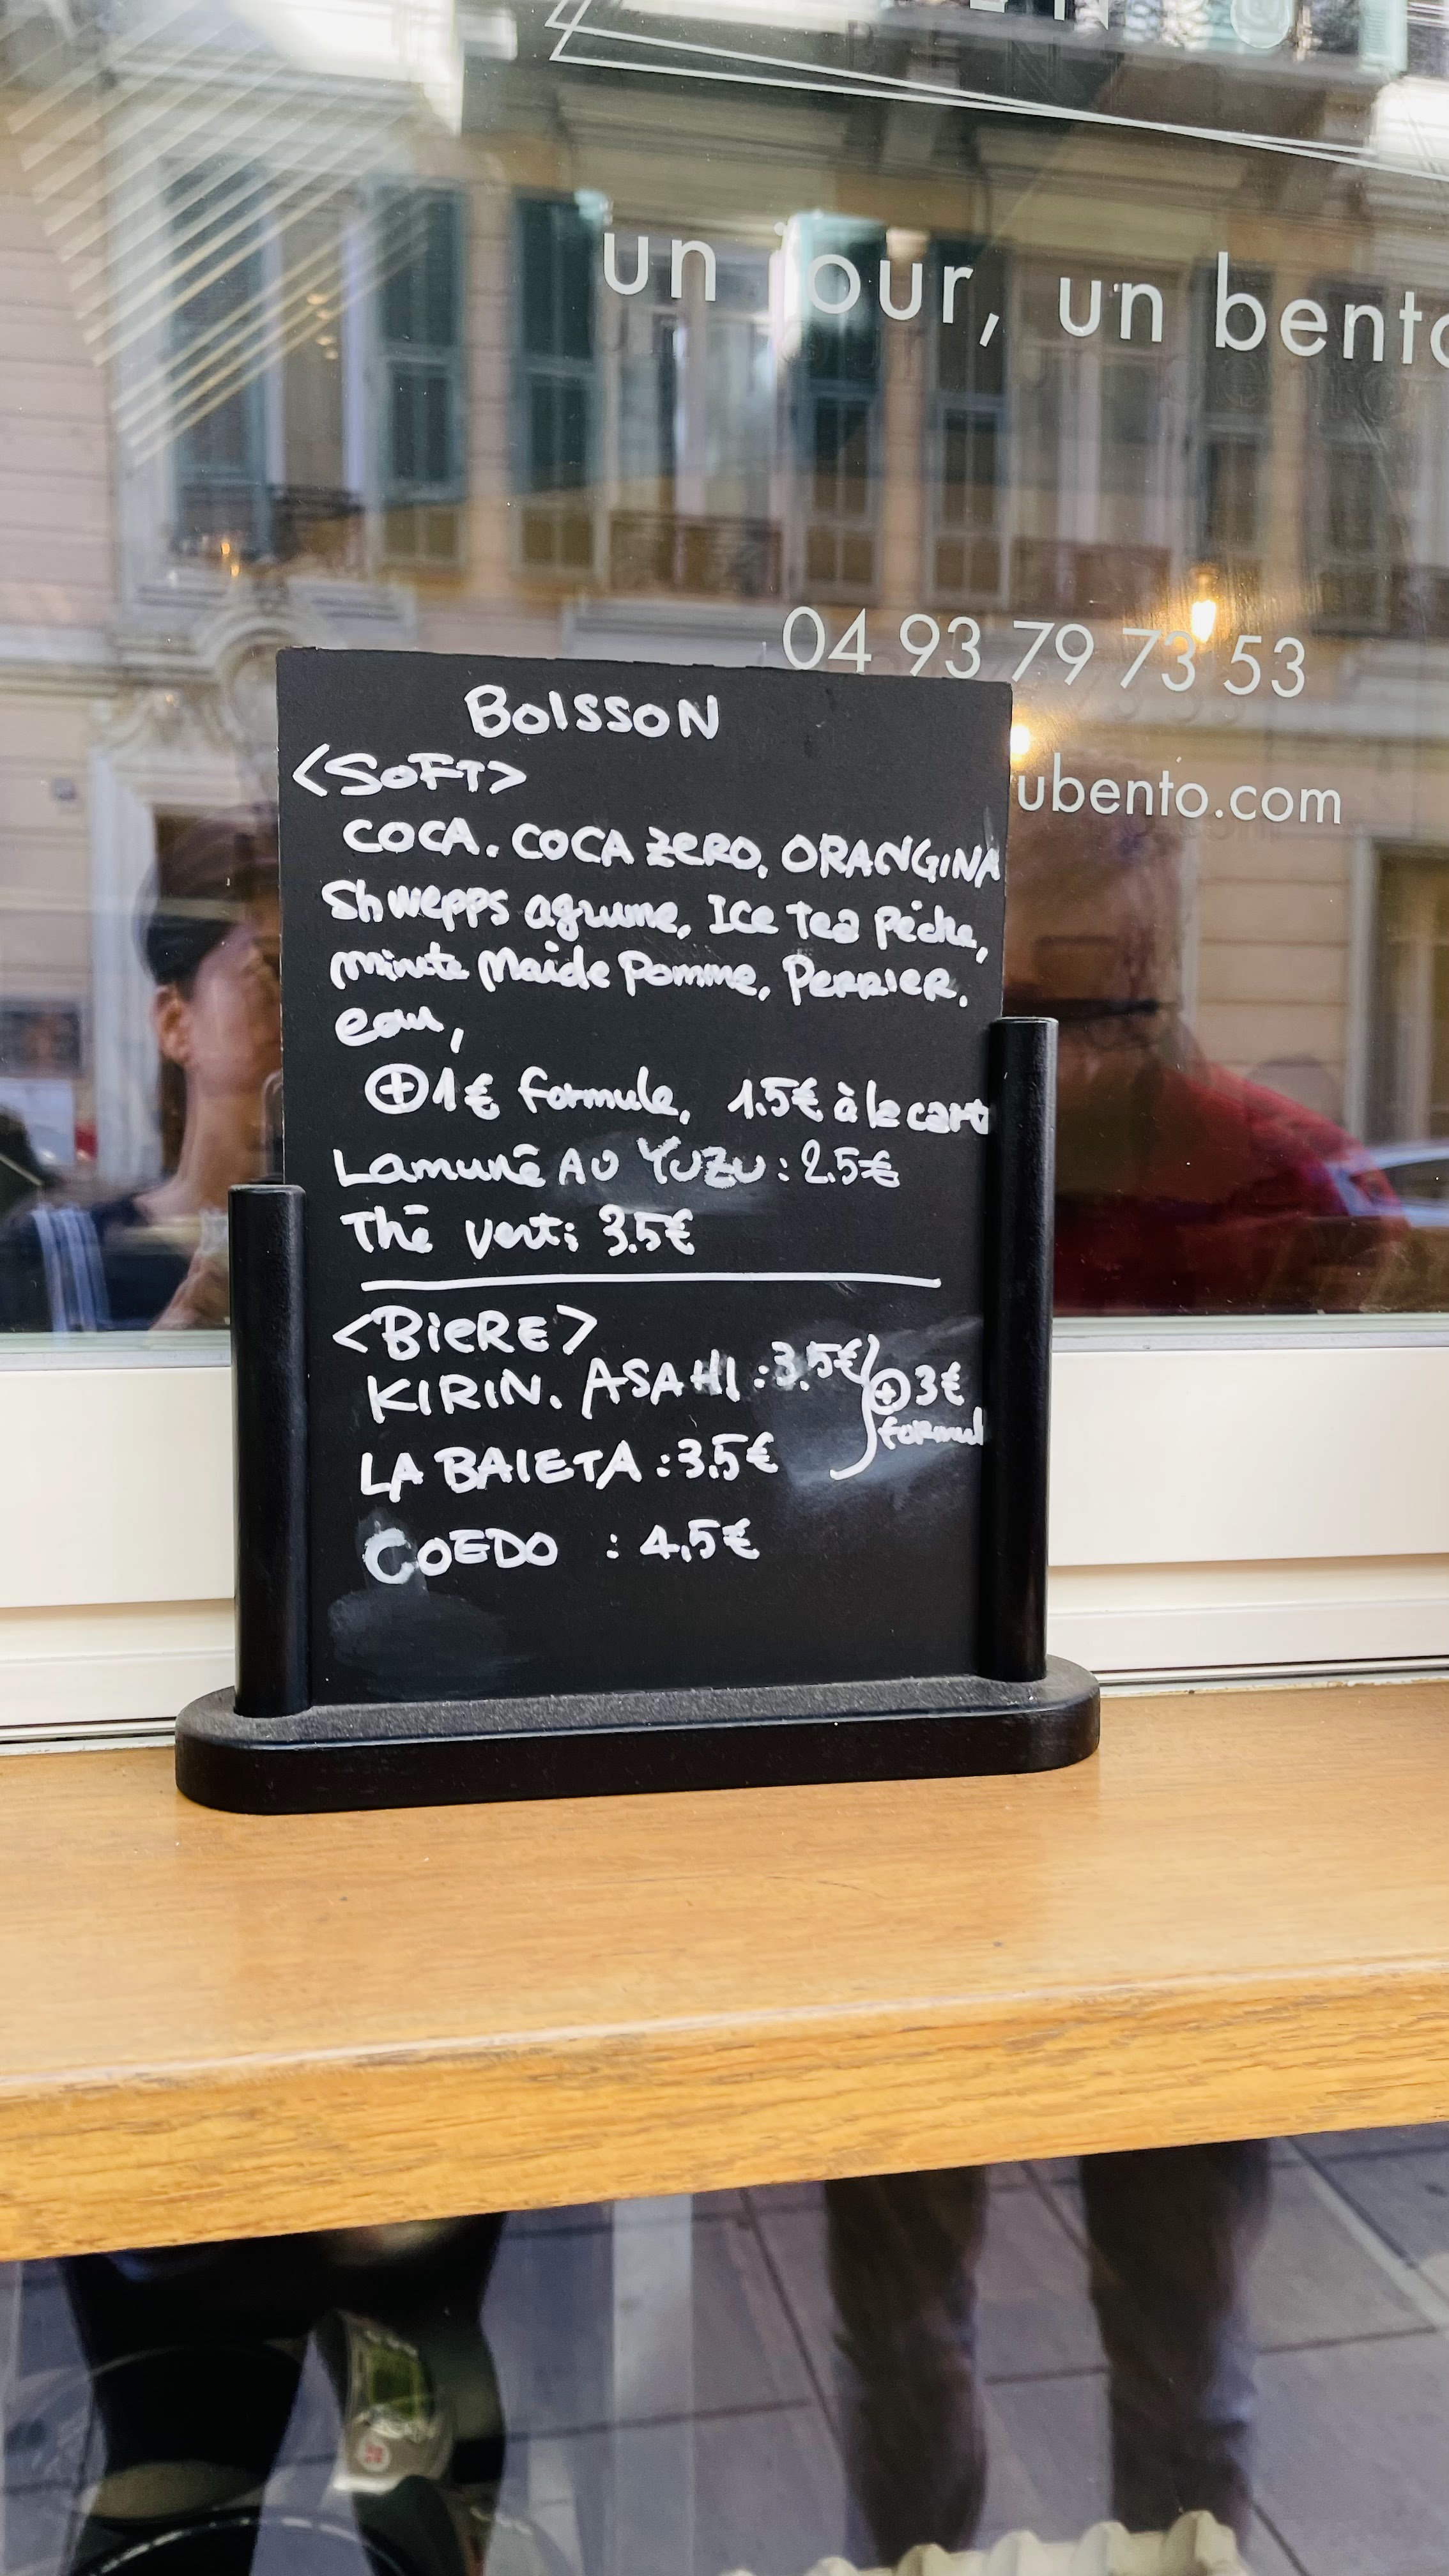 un jour, un bento
04 93 79 73 53
ubento.com
BOISSON
<SOFT>
COCA. COCA ZERO, ORANGINA
Shwepps agrume, Ice Tea Pêche,
minute Maide Pomme, PERRIER.
eau,
⊕1€ formule, 1.5€ à la cart
Lamunē AU YUZU : 2.5€
Thē vert: 3.5€
<BIERE>
KIRIN. ASAHI : 3.5€
⊕3€
formul
LA BAIETA : 3.5€
COEDO : 4.5€